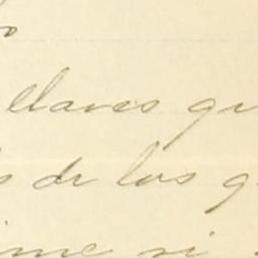 llaves qu
s de los q
ime si